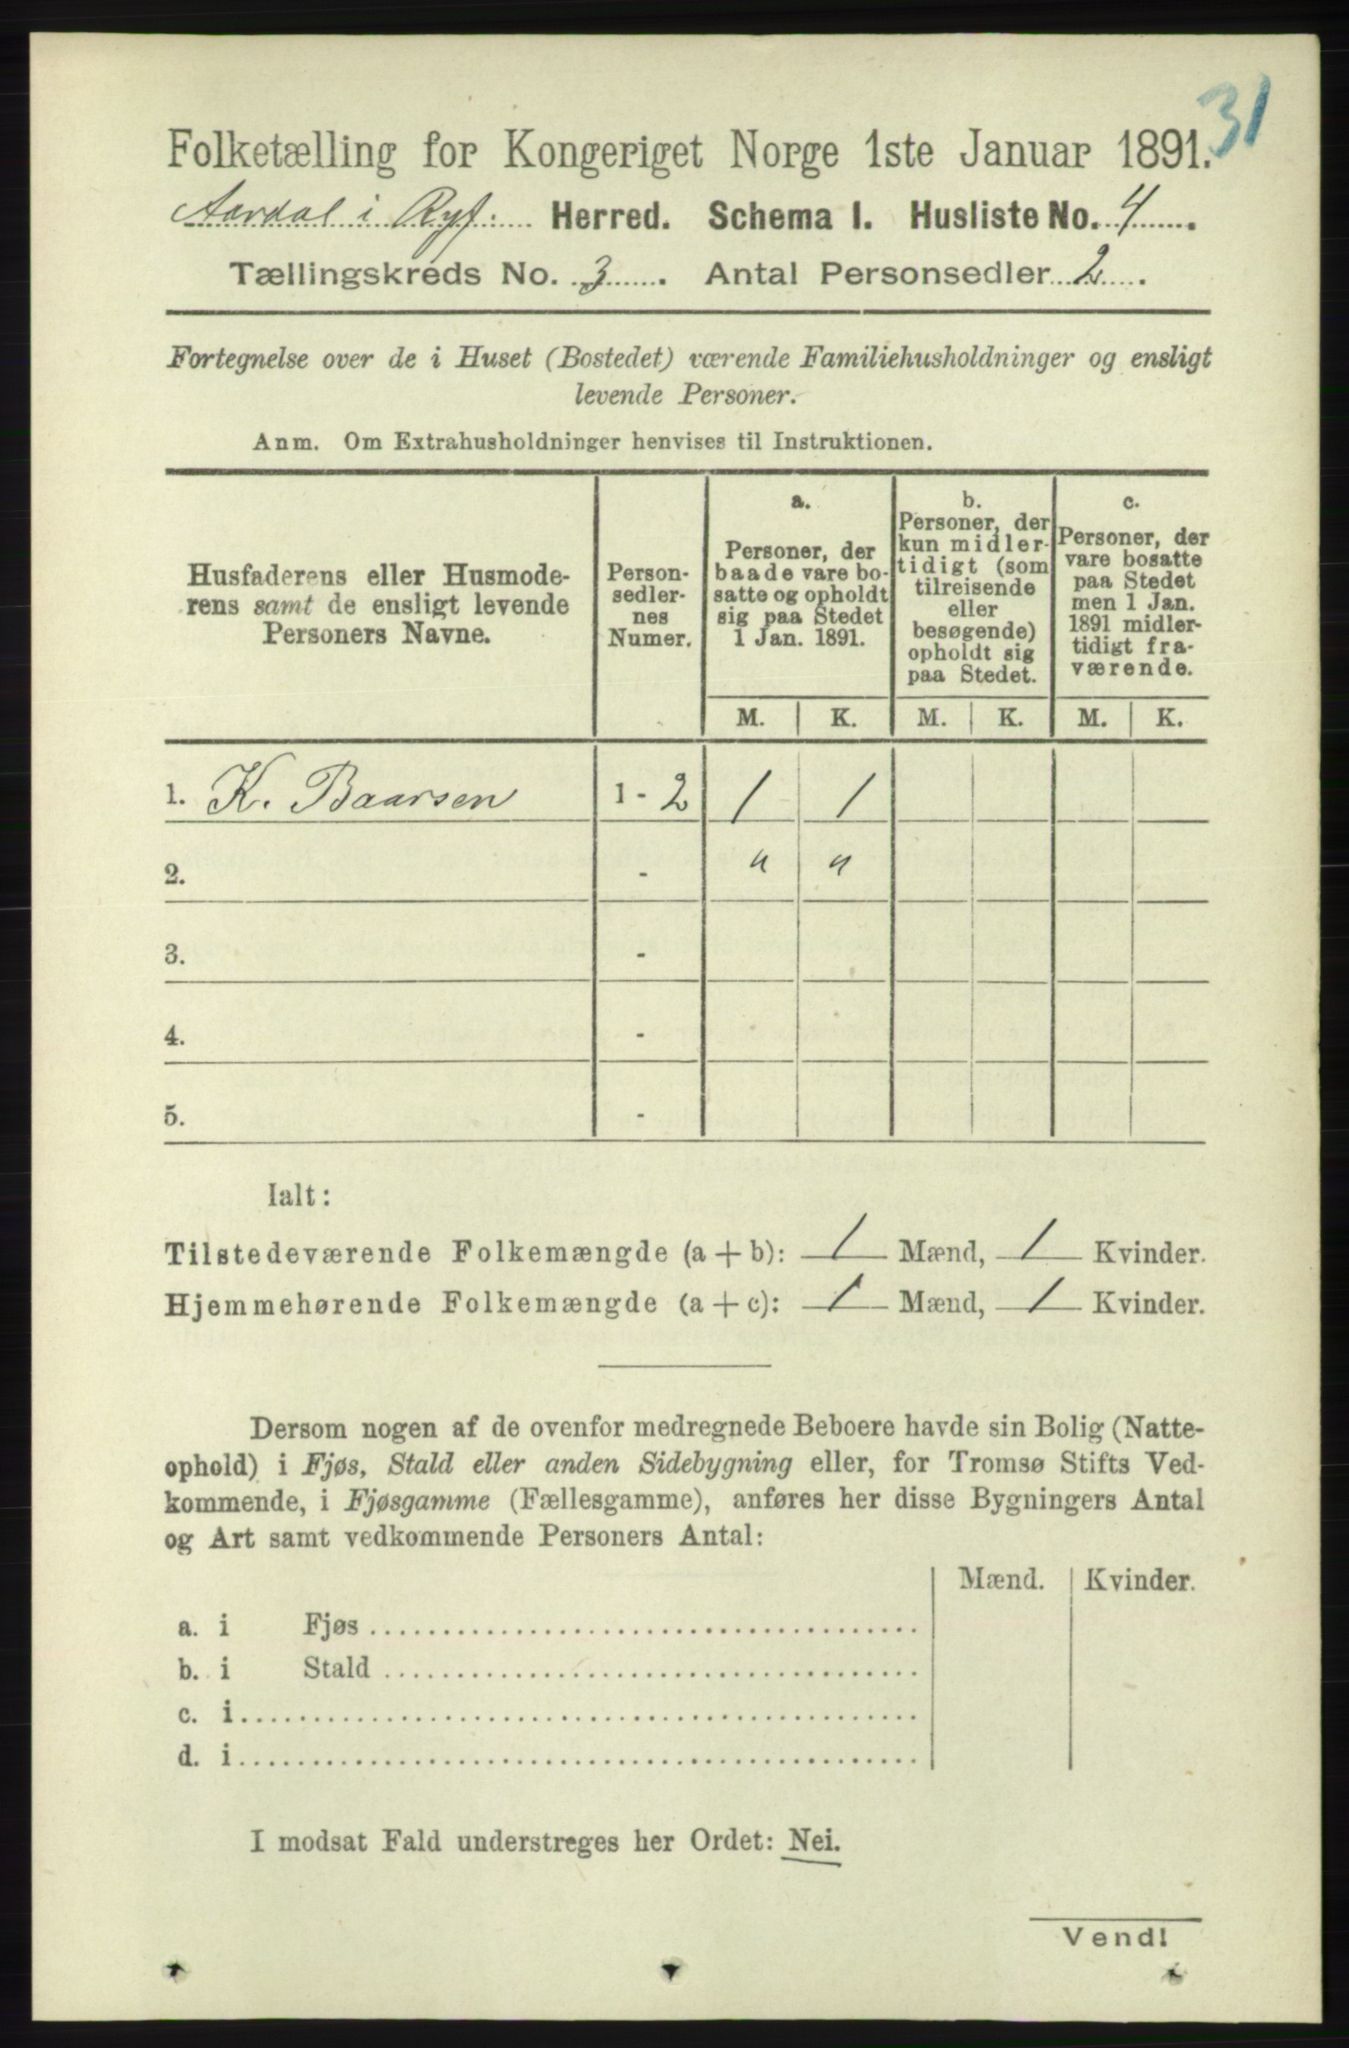 31
Folketælling for Kongeriget Norge 1ste Januar 1891.
Aardal i Ryf: Herred. Schema I. Husliste No. 4
Tællingskreds No. 3. Antal Personsedler 2.
Fortegnelse over de i Huset (Bostedet) værende Familiehusholdninger og ensligt
levende Personer.
Anm. Om Extrahusholdninger henvises til Instruktionen.
Husfaderens eller Husmode-
rens samt de ensligt levende
Personers Navne.
Person-
sedler-
nes
Numer.
a.
Personer, der
baade vare bo-
satte og opholdt
sig paa Stedet
1 Jan. 1891.
b.
Personer, der
kun midler-
tidigt (som
tilreisende
eller
besøgende)
opholdt sig
paa Stedet.
c.
Personer, der
vare bosatte
paa Stedet
men 1 Jan.
1891 midler-
tidigt fra-
værende.
M. K. M. K. M. K.
1. K. Baarsen 1 - 2 1 1
2. - " "
3. -
4. -
5. -
Ialt:
Tilstedeværende Folkemængde (a + b): 1 Mænd, 1 Kvinder.
Hjemmehørende Folkemængde (a + c): 1 Mænd, 1 Kvinder.
Dersom nogen af de ovenfor medregnede Beboere havde sin Bolig (Natte-
ophold) i Fjøs, Stald eller anden Sidebygning eller, for Tromsø Stifts Ved-
kommende, i Fjøsgamme (Fællesgamme), anføres her disse Bygningers Antal
og Art samt vedkommende Personers Antal:
Mænd. Kvinder.
a. i Fjøs
b. i Stald
c. i
d. i
I modsat Fald understreges her Ordet: Nei.
Vend!